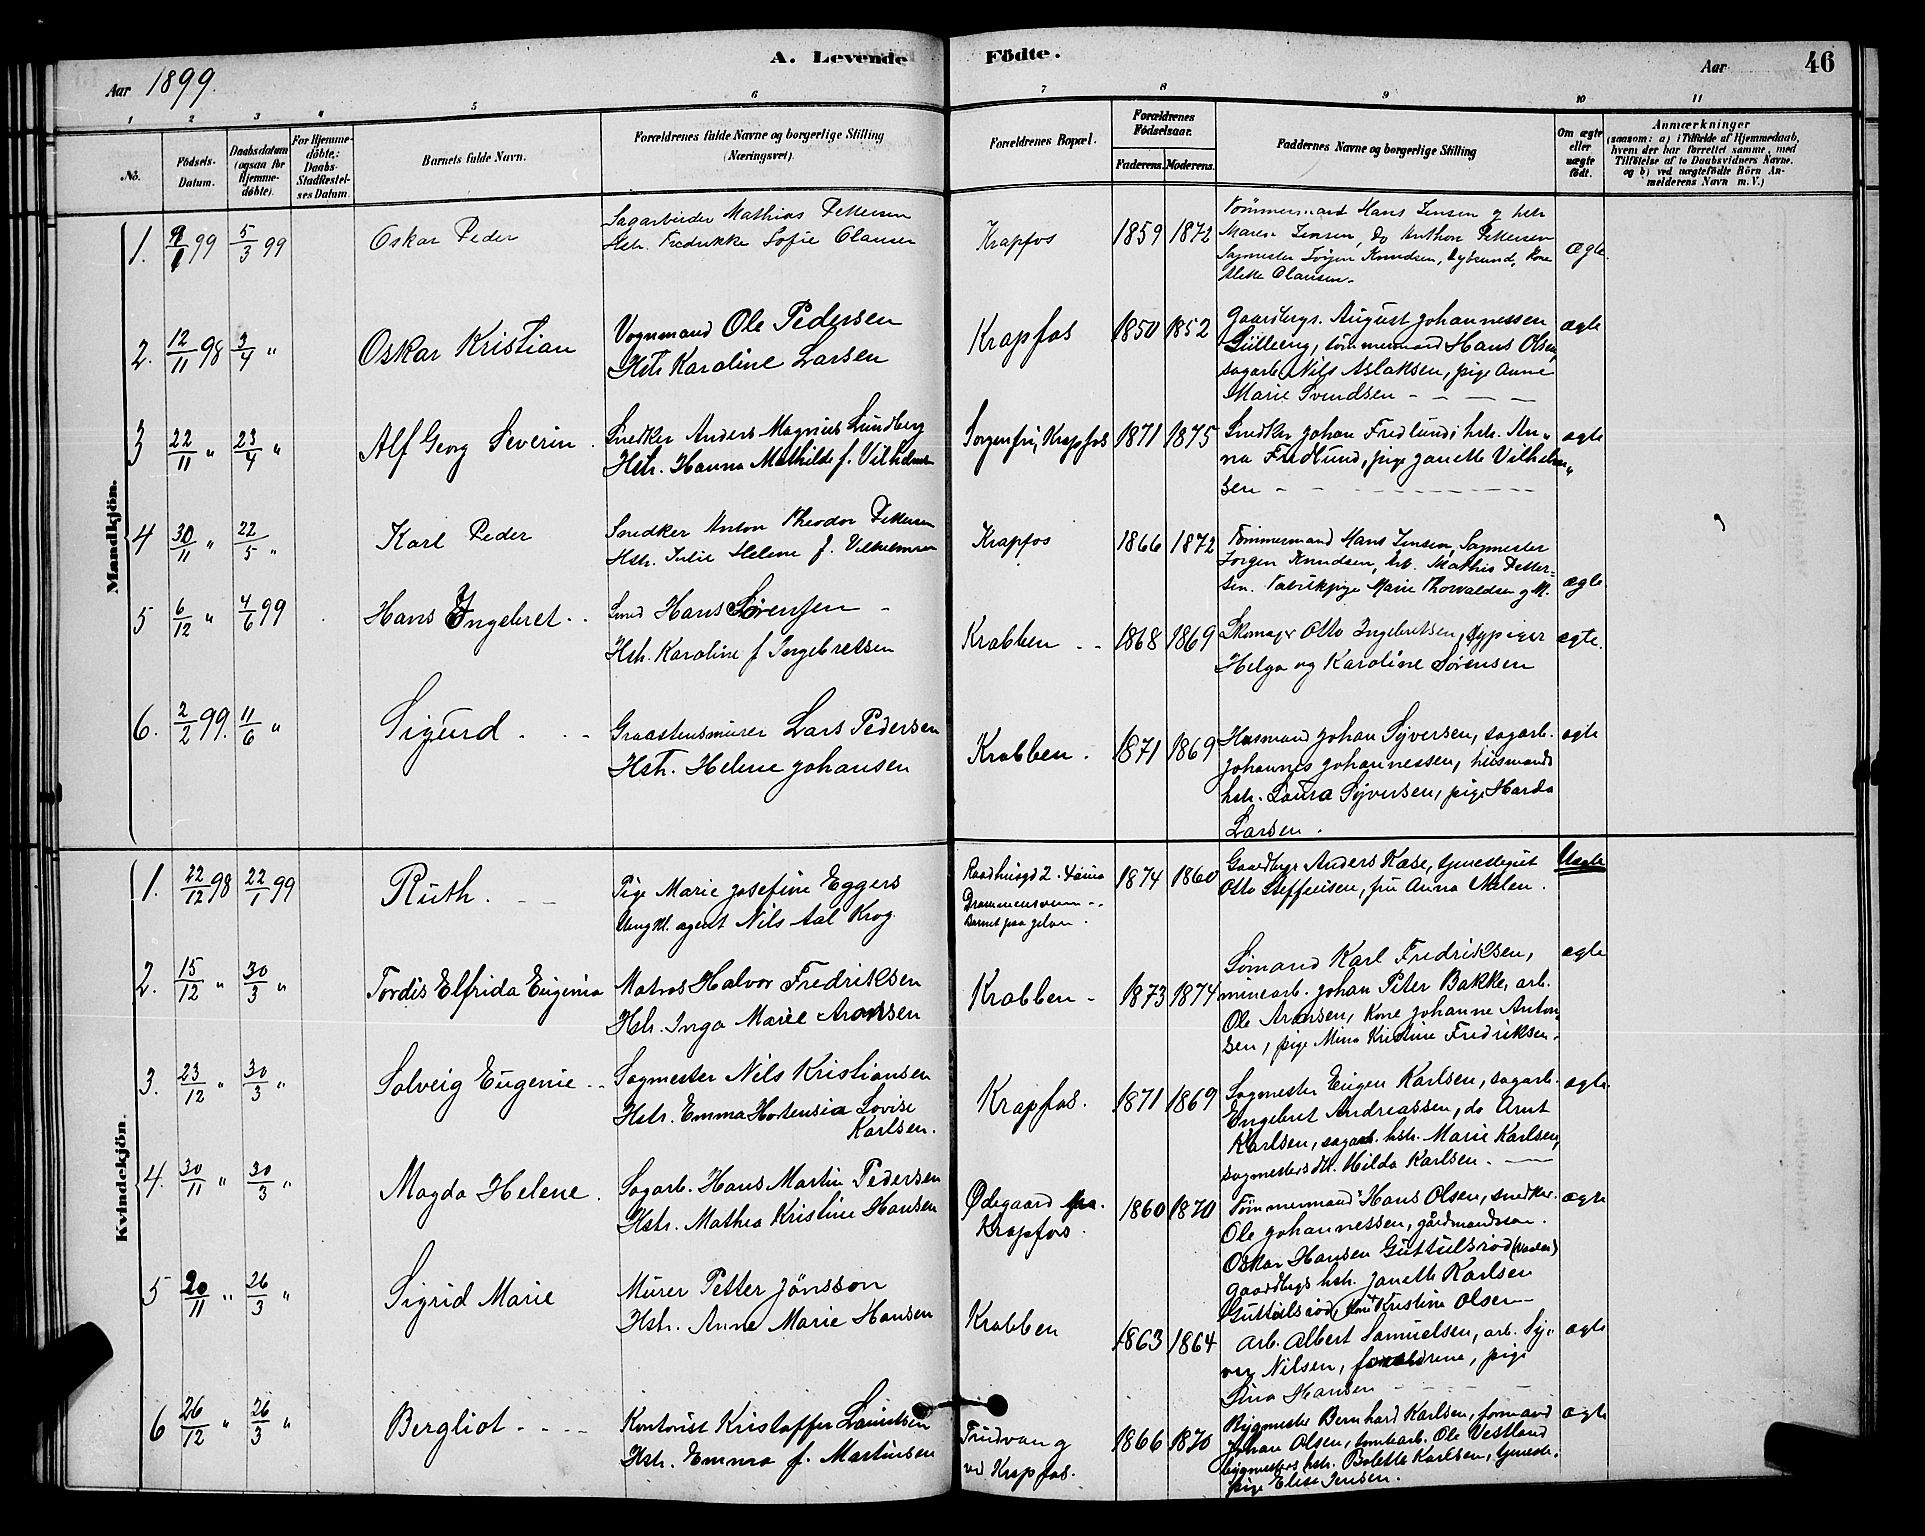 A. Levende Födte.
Aar 1899.
Aar
46
1 2 3 4 5 6 7 8 9 10 11
No.
Födsels-Datum.
Daabsdatum (ogsaa for Hjemme-döbte).
For Hjemme-döbte; Daabs Stadfestel-ses Datum.
Barnets fulde Navn.
Forældrenes fulde Navne og borgerlige Stilling (Næringsvei).
Forældrenes Bopæl.
Forældrenes Födselsaar.
Faderens. Moderens.
Faddernes Navne og borgerlige Stilling
Om ægte eller uægte födt.
Anmærkninger
(saasom: a) i Tilfælde af Hjemmedaab,
hvem der har forrettet samme, med
Tilföielse af to Daabsvidners Navne.
og b) ved uægtefödte Börn An-
melderens Navn m. V.)
Mandkjön.
1. 9/1 99 5/3 99 Oskar Peder
Sagarbeider Mathias Pettersen
Hstr. Fredrikke Sofie Clausen
Krapfos 1859 1872
Tømmermand Hans Jensen og hstr
Maren Jensen, do Anthon Pettersen
Sagmester Jørgen Knudsen, Kone
Clausen.
Ægte.
2. 12/11 98 3/4 " Oskar Kristian
Vognmand Ole Pedersen
Hstr Karoline Larsen
Krapfos 1850 1852
Gaardbrgr. August Johannessen
tømmermand Hans Olsen,
sagarb Nils Aslaksen, pige Anne
Marie Svendsen - - - -
ægte
3 22/11 " 23/4 " Alf Georg Severin.
Snedker Anders Magnus Lundberg
Hstr. Hanna Mathilde f. Vilhelmsen
Sorgenfri, Krapfos 1871 1875
Snedker Johan Fredlund, hstr. An-
na Fredlund, pige Janette Vilhelm-
sen - - -
ægte
4 30/11 " 22/5 " Karl Peder
Snedker Anton Theodor Pettersen
Hstr. Julie Helene f. Vilhelmsen
Krapfos 1866 1872
Tømmermand Hans Jensen, Sagmester
Jørgen Knudsen, Arb. Mathis Petter-
sen. Fabrikpige Marie Thorvaldsen og M.
Ægte
5 6/12 " 4/6 99 Hans Ingebret
Smed Hans Sørensen -
Hstr. Karoline f Ingebretsen
Krabben - - 1868 1869
Skomager Otto Ingebretsen, sypiger
Helga og Karoline Sørensen
ægte.
6. 2/2 99. 11/6 " Sigurd
Graastensmurer Lars Pedersen
Hstr. Helene Johansen
Krabben. 1871 1869
Husmand Johan Syversen, sagarb.
Johannes Johannessen, husmands
hstr. Laura Syversen, pige Harda
Larsen.
ægte
Kvindekjön.
1. 22/12 98 22/1 99 Ruth.
Pige Marie Josefine Eggers
Ungkl. agent Nils Aal Krog.
Raadhusgd 2. Kåina
Drammensveien
Barnet paa
1874 1860
Gaardbrgr Anders Kase, tjenestegut
Otto Steffensen, fru Anna Nilen.
Uægte
2. 15/12 " 30/3 " Tordis Elfrida Eugenia
Matros Halvor Fredriksen
Hstr. Inga Marie Aronsen
Krabben - 1873 1874
Sømand Karl Fredriksen,
minearb. Johan Peter Bakke, arb.
Ole Aronsen, Kone Johanne Anton
sen, pige Mina Kristine Fredriksen.
ægte
3. 23/12 " 30/3 " Solveig Eugenie
Sagmester Nils Kristiansen
Hstr. Emma Hortensia Lovise
Karlsen.
Krapfos. 1871 1869
Sagmester Eugen Karlsen, sagarb.
Engebret Andreassen, do Arnt
Karlsen, sagarb. hstr. Marie Karlsen,
sagmesters dtr. Hilda Karlsen. -
ægte
4. 30/11 " 30/3 " Magda Helene.
Sagarb. Hans Martin Pedersen
Hstr. Mathea Kristine Hansen
Ødegaard
Krapfos. 1860 1870
Tømmermand Hans Olsen, snedker
Ole Johannessen, gårdmandssøn
Oskar Hansen Guttulsrød (Vaaler)
Gaardbrgs hstr. Janette Karlsen
Guttulsrød, Kone Kristine Olsen
ægte
5 20/11 " 26/3 " Sigrid Marie
Murer Petter Jönsson
Hstr. Anne Marie Hansen
Krabben 1863 1864
arb. Albert Samuelsen, arb. Sy-
ver Nilsen, forældrene, pige
Lina Hansen - - -
ægte
6 26/12 " 26/3 " Bergliot
Kontorist Kristoffer Lauritsen
Hstr. Emma f. Martinsen
Fridvang
ved Krapfos. 1866 1870
Bygmester Bernhard Karlsen, formand
Johan Olsen, tomtearb. Ole Vestlund
bygmesters hstr. Bolette Karlsen, tjeneste-
pige Elise Jensen.
ægte